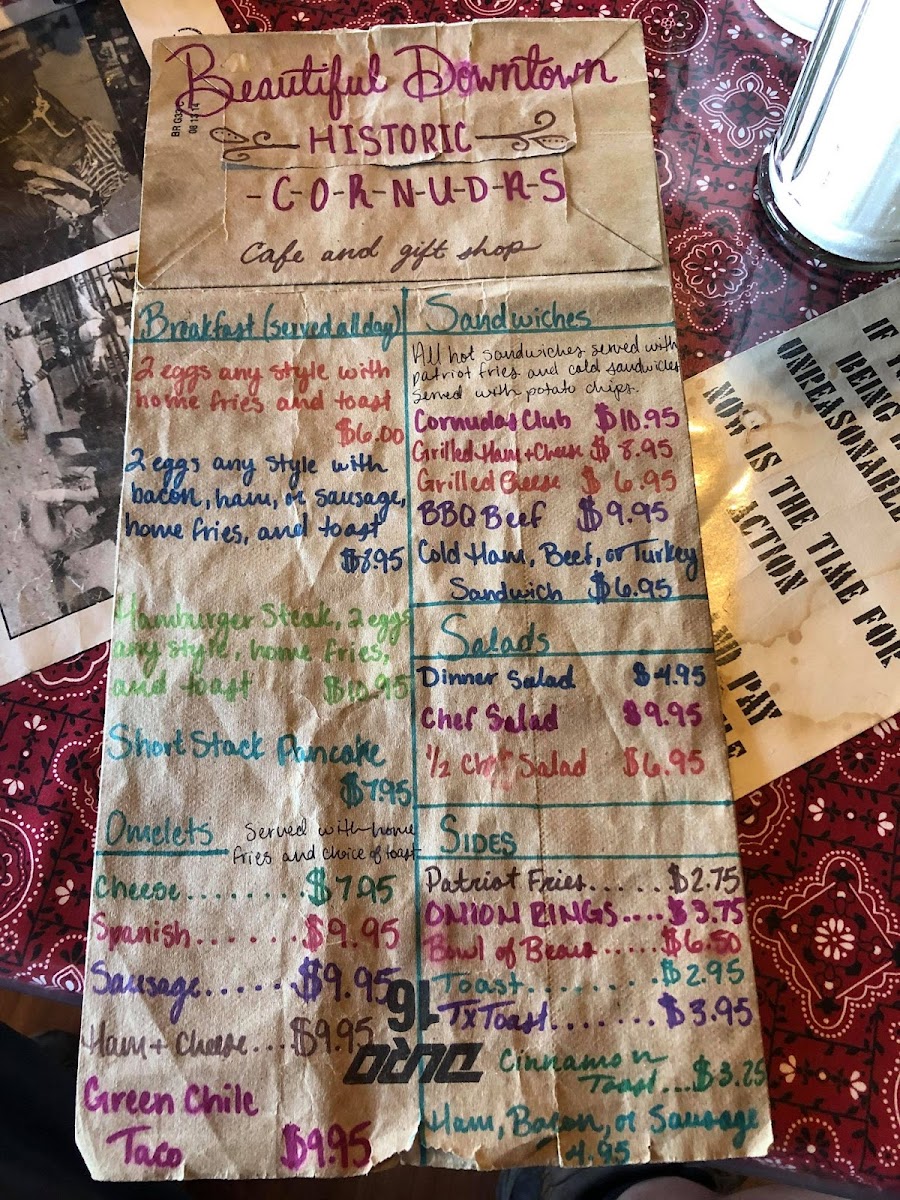 Beautiful Downtown
HISTORIC
-C-O-R-N-U-D-A-S
Cafe and gift shop
BR G33C
08 13 14
Breakfast (served all day)
2 eggs any style with
home fries and toast
$6.00
2 eggs any style with
bacon, ham, or sausage,
home fries, and toast
$8.95
Hamburger Steak, 2 eggs
any style, home fries,
and toast $10.95
Short Stack Pancake
$7.95
Omelets Served with home
fries and choice of toast
Cheese........ $7.95
Spanish...... $9.95
Sausage..... $9.95
Ham + Cheese... $9.95
Green Chile
Taco $9.95
Sandwiches
All hot sandwiches served with
patriot fries and cold sandwiches
served with potato chips.
Cornudas Club $10.95
Grilled Ham + Cheese $8.95
Grilled Cheese $6.95
BBQ Beef $9.95
Cold Ham, Beef, or Turkey
Sandwich $6.95
Salads
Dinner Salad $4.95
Chef Salad $9.95
1/2 Chef Salad $6.95
SIDES
Patriot Fries..... $2.75
ONION RINGS.... $3.75
Bowl of Beans ..... $6.50
Toast........ $2.95
Tx Toast....... $3.95
Cinnamon
Toast...$3.25
Ham, Bacon, or Sausage
4.95
16
DURO
IF
BEING
UNREASONABLE
NOW IS THE TIME FOR
ACTION
PAY